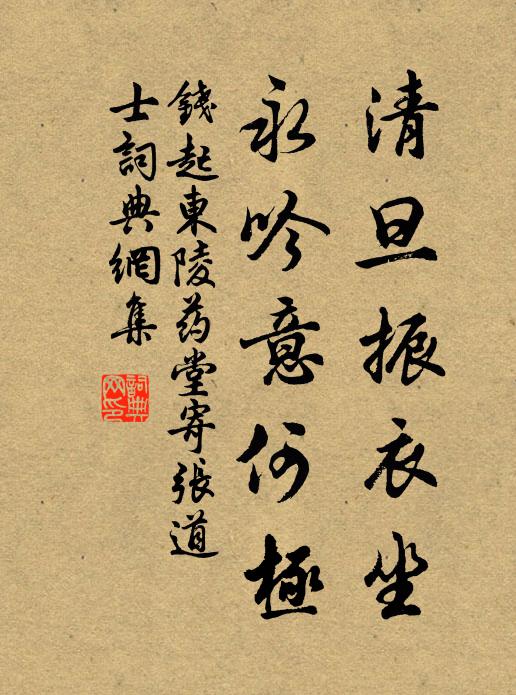 清旦振衣坐
永吟意何極
錢起東陵药堂寄張道
士詞典網集
詞典網印